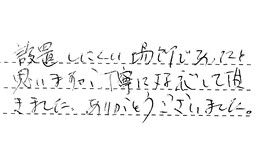 設置しにくい場所でしたと
思いますが、丁寧に対応して頂
きました。ありがとうございました。